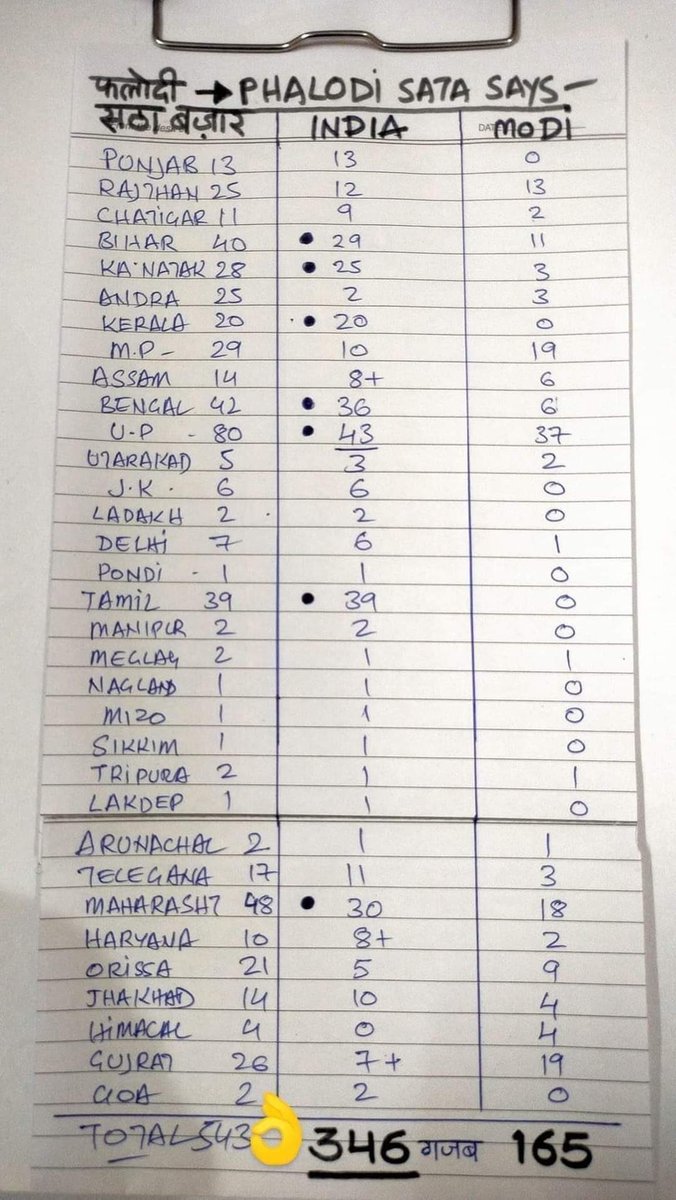 फलोदी → PHALODI SATA SAYS –
सठा बज़ार INDIA MODI
PUNJAB 13 13 0
RAJTHAN 25 12 13
CHATIGAR 11 9 2
BIHAR 40 • 29 11
KA'NATAK 28 • 25 3
ANDRA 25 2 3
KERALA 20 • 20 0
M.P - 29 10 19
ASSAM 14 8+ 6
BENGAL 42 • 36 6
U-P - 80 • 43 37
UTARAKAD 5 3 2
J.K. 6 6 0
LADAKH 2 2 0
DELHI 7 6 1
PONDI - 1 1 0
TAMIL 39 • 39 0
MANIPUR 2 2 0
MEGLAY 2 1 1
NAGLAND 1 1 0
MIZO 1 1 0
SIKKIM 1 1 0
TRIPURA 2 1 1
LAKDEP 1 1 0
ARUNACHAL 2 1 1
TELEGANA 17 11 3
MAHARASHT 48 • 30 18
HARYANA 10 8+ 2
ORISSA 21 5 9
JHAKHAD 14 10 4
HIMACAL 4 0 4
GUJRAT 26 7+ 19
GOA 2 2 0
TOTAL 543 👌 346 गजब 165